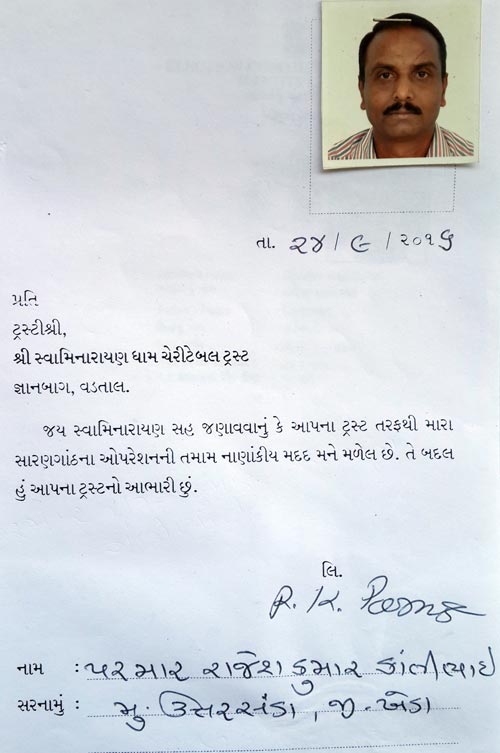 તા. ૨૪/૯/૨૦૧૬
પ્રતિ
ટ્રસ્ટીશ્રી,
શ્રી સ્વામિનારાયણ ધામ ચેરીટેબલ ટ્રસ્ટ
જ્ઞાનબાગ, વડતાલ.
જય સ્વામિનારાયણ સહ જણાવવાનું કે આપના ટ્રસ્ટ તરફથી મારા
સારણગાંઠના ઓપરેશનની તમામ નાણાંકીય મદદ મને મળેલ છે. તે બદલ
હું આપના ટ્રસ્ટનો આભારી છું.
લિ.
R. K.
નામ : પરમાર રાજેશકુમાર કાંતીભાઇ
સરનામું : મુ. ઉત્તરસંડા, જી. ખેડા